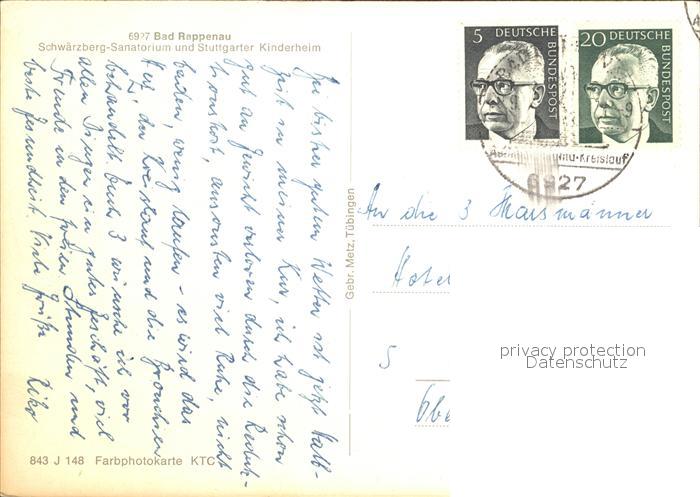 6927 Bad Rappenau
Schwärzberg-Sanatorium und Stuttgarter Kinderheim
Bei bisher gutem Wetter ist jetzt Halb-
zeit in meiner Kur, ich habe schon
gut an Gewicht verloren durch die Reduk-
tionskost, ansonsten viel Ruhe, nicht
baden, wenig laufen - es wird das
Herz, der Kreislauf und die Bronchien
behandelt. Euch 3 wünsche ich vor
allen Dingen ein gutes Geschäft, viel
Freude in den freien Stunden und
beste Gesundheit. Viele Grüße
843 J 148 Farbphotokarte KTC
Gebr. Metz, Tübingen
5 DEUTSCHE BUNDESPOST
20 DEUTSCHE BUNDESPOST
Kreislauf
6927
An die 3 Hausmänner
Hotel
5
Obe
privacy protection
Datenschutz